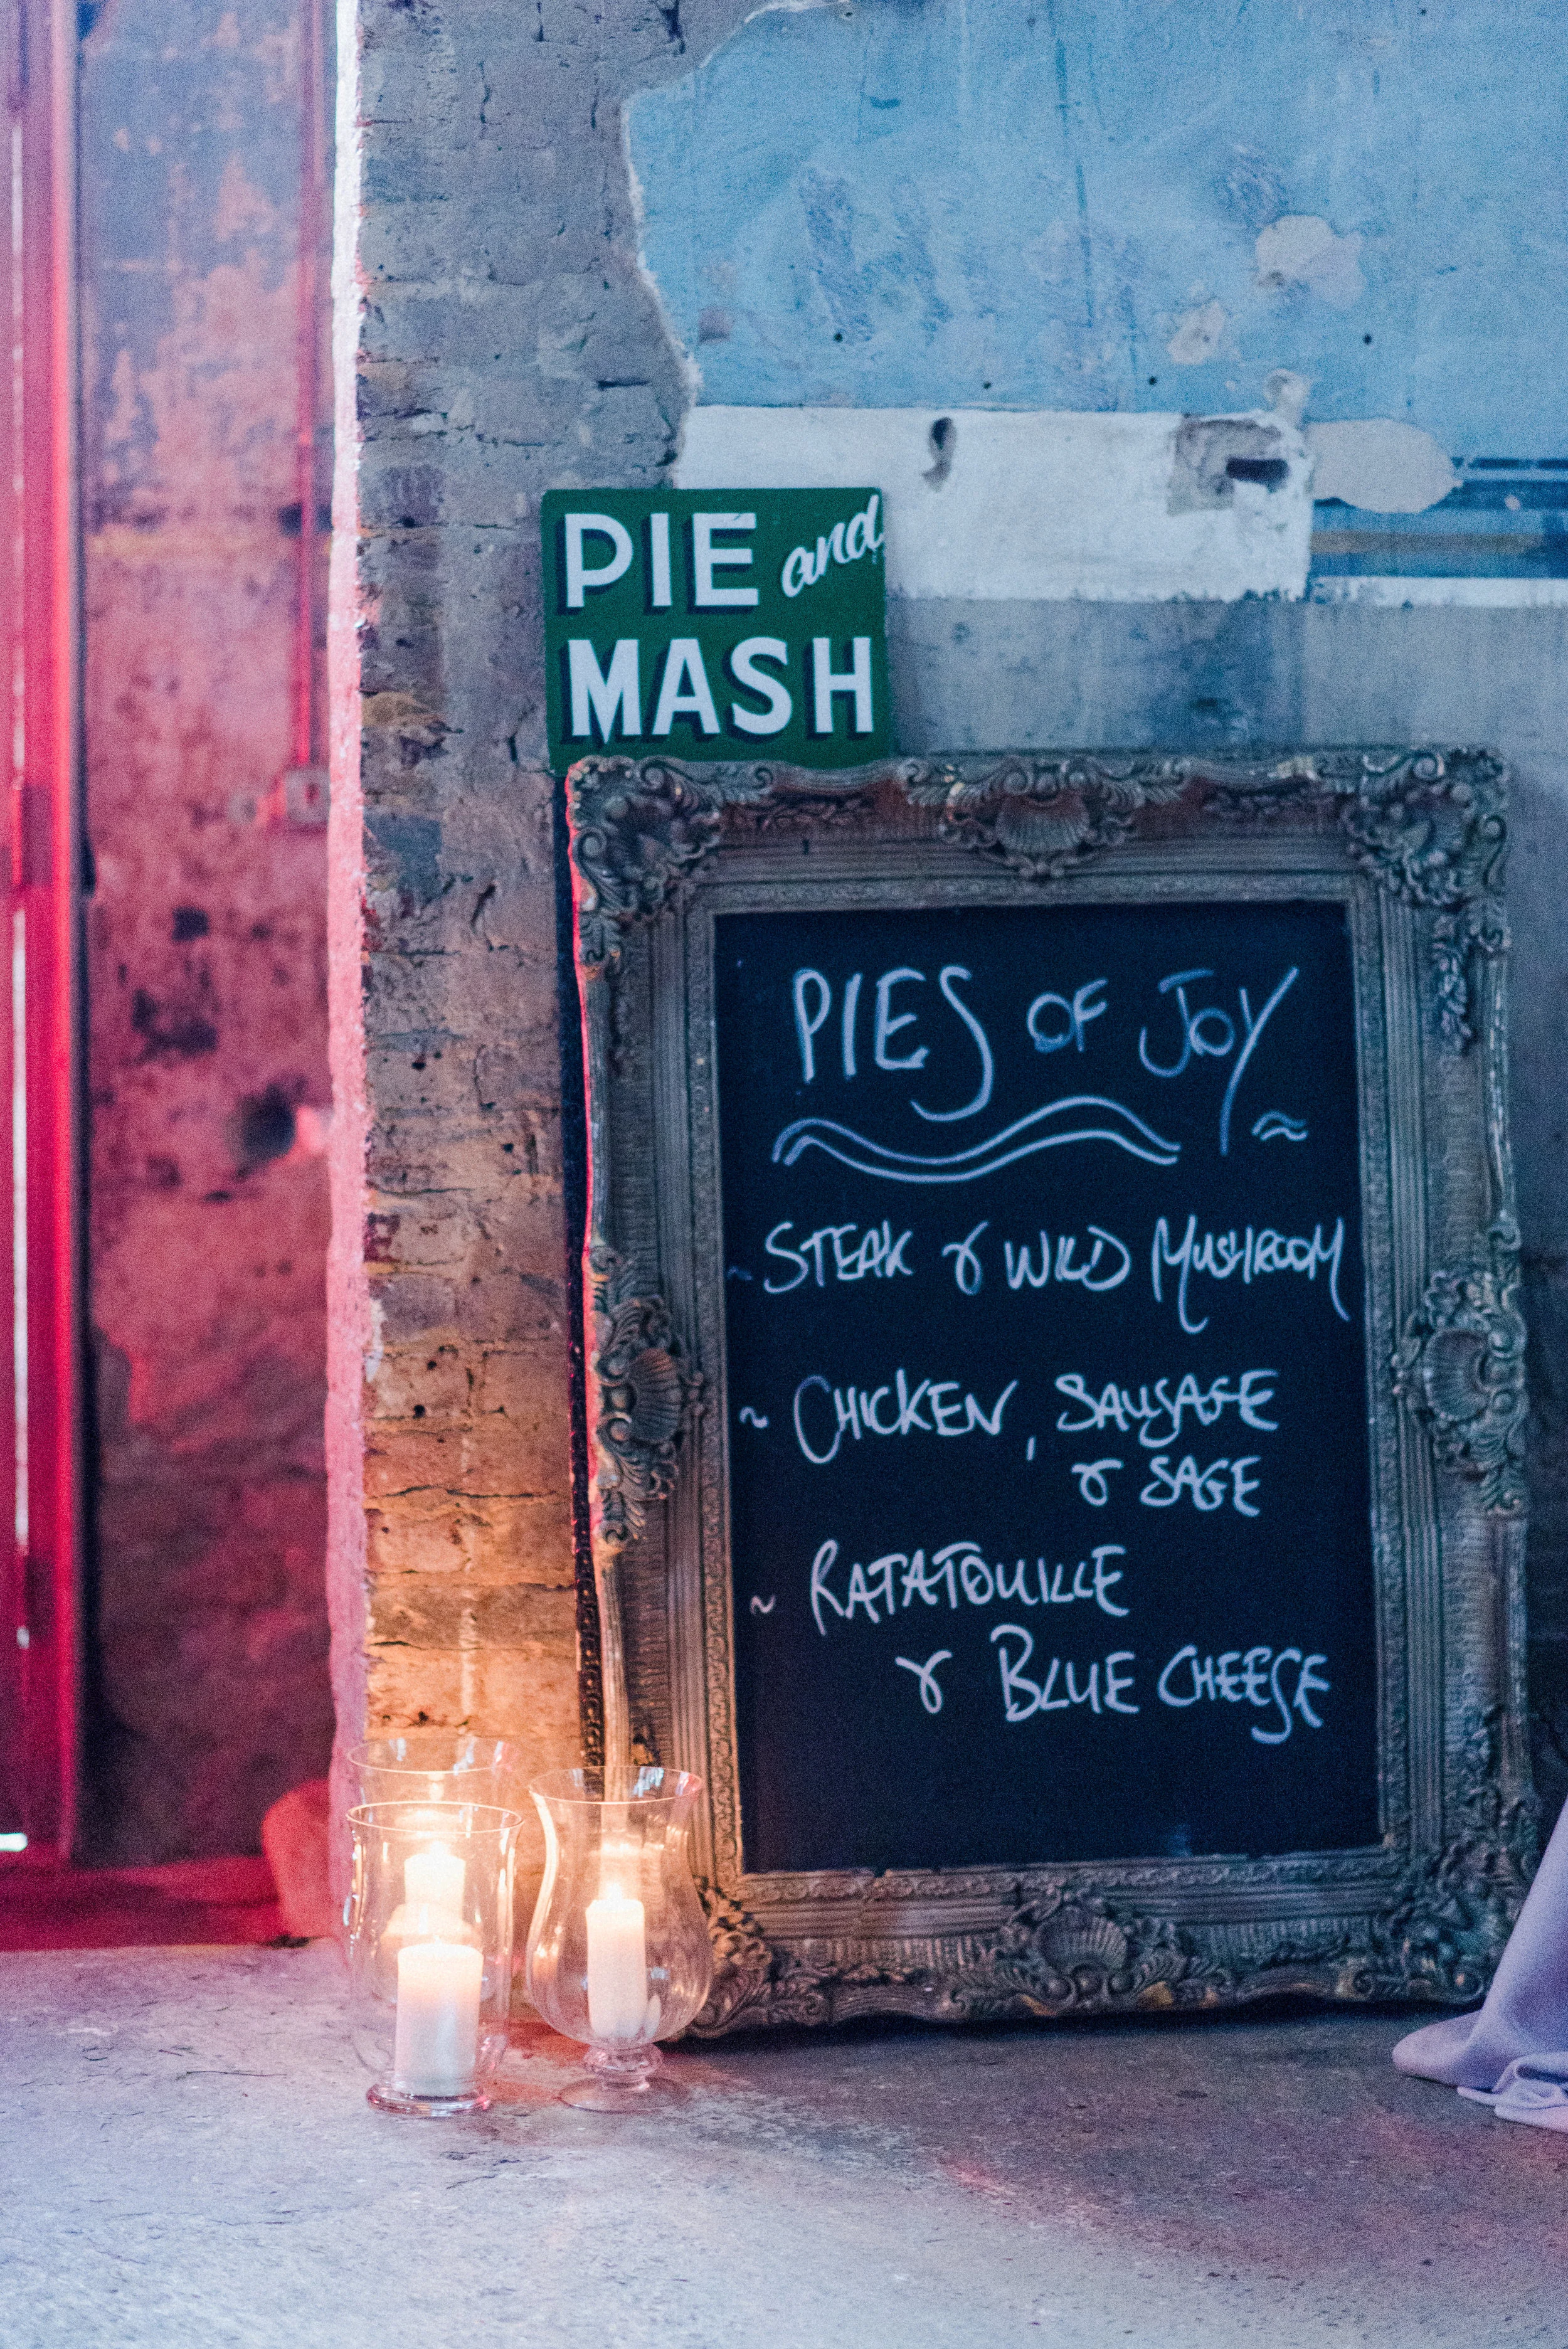 PIE and
MASH
PIES OF JOY
~ STEAK & WILD MUSHROOM
~ CHICKEN, SAUSAGE
& SAGE
~ RATATOUILLE
& BLUE CHEESE